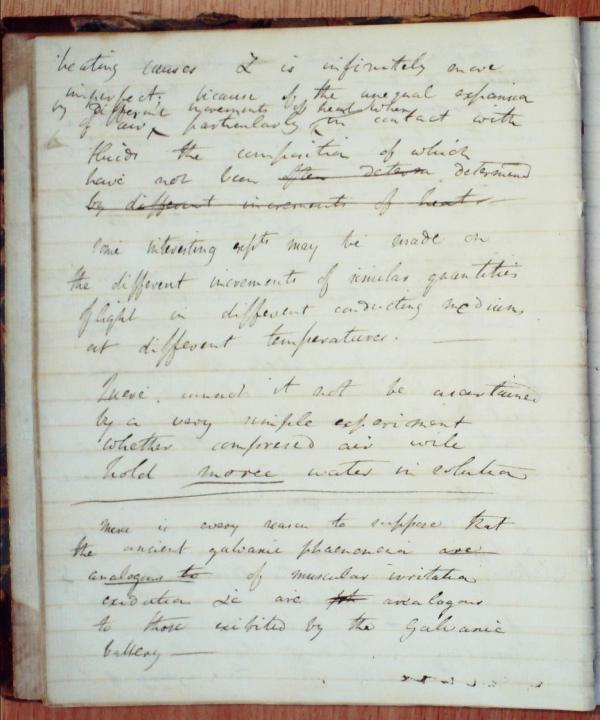 heating causes & is infinitely more
imperfect, because of the unequal expansion
by different increments of heat when
of air, particularly in contact with
fluids the composition of which
have not been often determ determined
by different increments of heat
Some interesting expts may be made on
the different increments of similar quantities
of light in different conducting mediums
at different temperatures. —
Quere. cannot it not be ascertained
by a very simple experiment
whether compressed air will
hold more water in solution
There is every reason to suppose that
the ancient galvanic phaenomena are
analogous to of muscular irritation
oxidation &c are analogous
to those exibited by the Galvanic
battery —